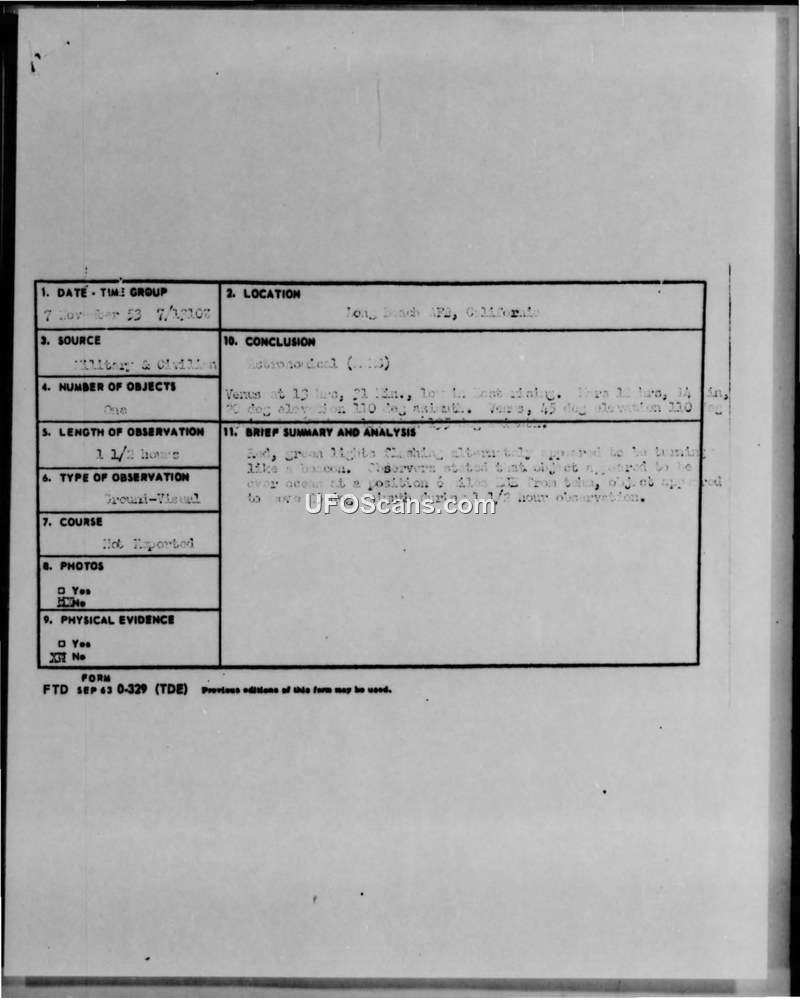 1. DATE - TIME GROUP
7 November 53 7/1310Z
2. LOCATION
Long Beach AFB, California
3. SOURCE
Military & Civilian
10. CONCLUSION
Astronomical
Venus at 13 hrs, 31 Min., low in East rising. hrs, 14 min,
20 deg elevation 110 deg azimuth. 45 deg elevation 110 deg
4. NUMBER OF OBJECTS
One
5. LENGTH OF OBSERVATION
1 1/2 hours
11. BRIEF SUMMARY AND ANALYSIS
Red, green lights flashing alternately appeared to be turning
like a beacon. Observers stated that object appeared to be
over ocean at a position 6 miles from object appeared
to during 1 1/2 hour observation.
6. TYPE OF OBSERVATION
Ground-Visual
7. COURSE
Not Reported
8. PHOTOS
□ Yes
No
9. PHYSICAL EVIDENCE
□ Yes
No
FORM
FTD SEP 63 0-329 (TDE) Previous editions of this form may be used.
UFOScans.com